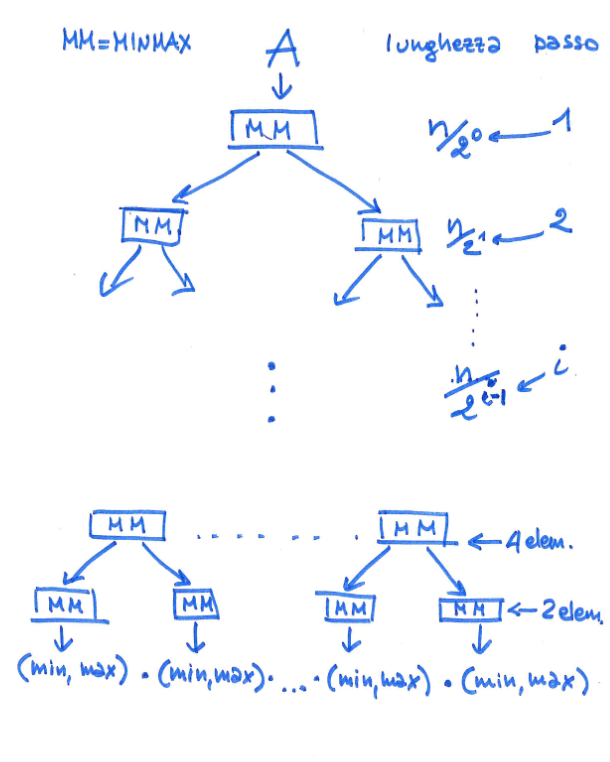 MM=MINMAX A lunghezza passo
MM n/2⁰ 1
MM MM n/2¹ 2
n/2ⁱ⁻¹ i
MM . . . . . . . MM 4 elem.
MM MM MM MM 2 elem.
(min, max) • (min, max) • ... • (min, max) • (min, max)